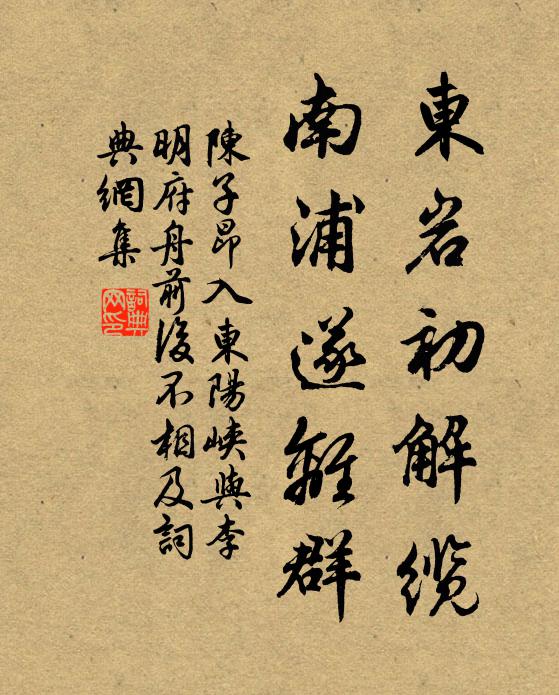 東岩初解纜
南浦遂離群
陳子昂入東陽峽與李
明府舟前後不相及詞
典網集
詞典
网印